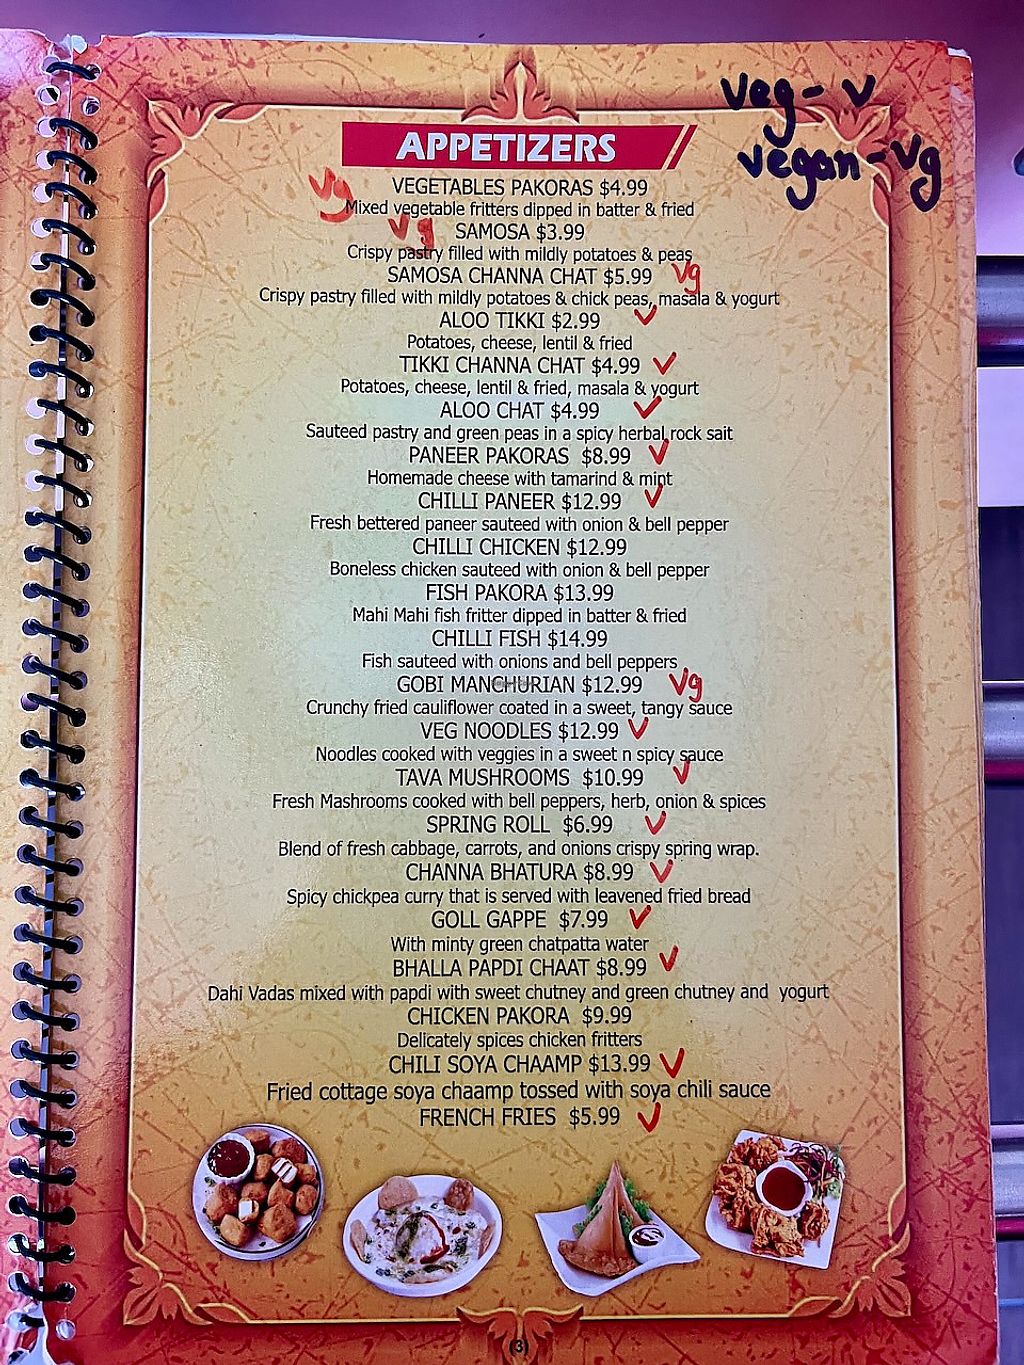 veg - v
vegan - vg
APPETIZERS
vg VEGETABLES PAKORAS $4.99
Mixed vegetable fritters dipped in batter & fried
vg SAMOSA $3.99
Crispy pastry filled with mildly potatoes & peas
SAMOSA CHANNA CHAT $5.99 vg
Crispy pastry filled with mildly potatoes & chick peas, masala & yogurt
ALOO TIKKI $2.99 v
Potatoes, cheese, lentil & fried
TIKKI CHANNA CHAT $4.99 v
Potatoes, cheese, lentil & fried, masala & yogurt
ALOO CHAT $4.99 v
Sauteed pastry and green peas in a spicy herbal rock sait
PANEER PAKORAS $8.99 v
Homemade cheese with tamarind & mint
CHILLI PANEER $12.99 v
Fresh bettered paneer sauteed with onion & bell pepper
CHILLI CHICKEN $12.99
Boneless chicken sauteed with onion & bell pepper
FISH PAKORA $13.99
Mahi Mahi fish fritter dipped in batter & fried
CHILLI FISH $14.99
Fish sauteed with onions and bell peppers
GOBI MANCHURIAN $12.99 vg
Crunchy fried cauliflower coated in a sweet, tangy sauce
VEG NOODLES $12.99 v
Noodles cooked with veggies in a sweet n spicy sauce
TAVA MUSHROOMS $10.99 v
Fresh Mashrooms cooked with bell peppers, herb, onion & spices
SPRING ROLL $6.99 v
Blend of fresh cabbage, carrots, and onions crispy spring wrap.
CHANNA BHATURA $8.99 v
Spicy chickpea curry that is served with leavened fried bread
GOLL GAPPE $7.99 v
With minty green chatpatta water
BHALLA PAPDI CHAAT $8.99 v
Dahi Vadas mixed with papdi with sweet chutney and green chutney and yogurt
CHICKEN PAKORA $9.99
Delicately spices chicken fritters
CHILI SOYA CHAAMP $13.99 v
Fried cottage soya chaamp tossed with soya chili sauce
FRENCH FRIES $5.99 v
(3)